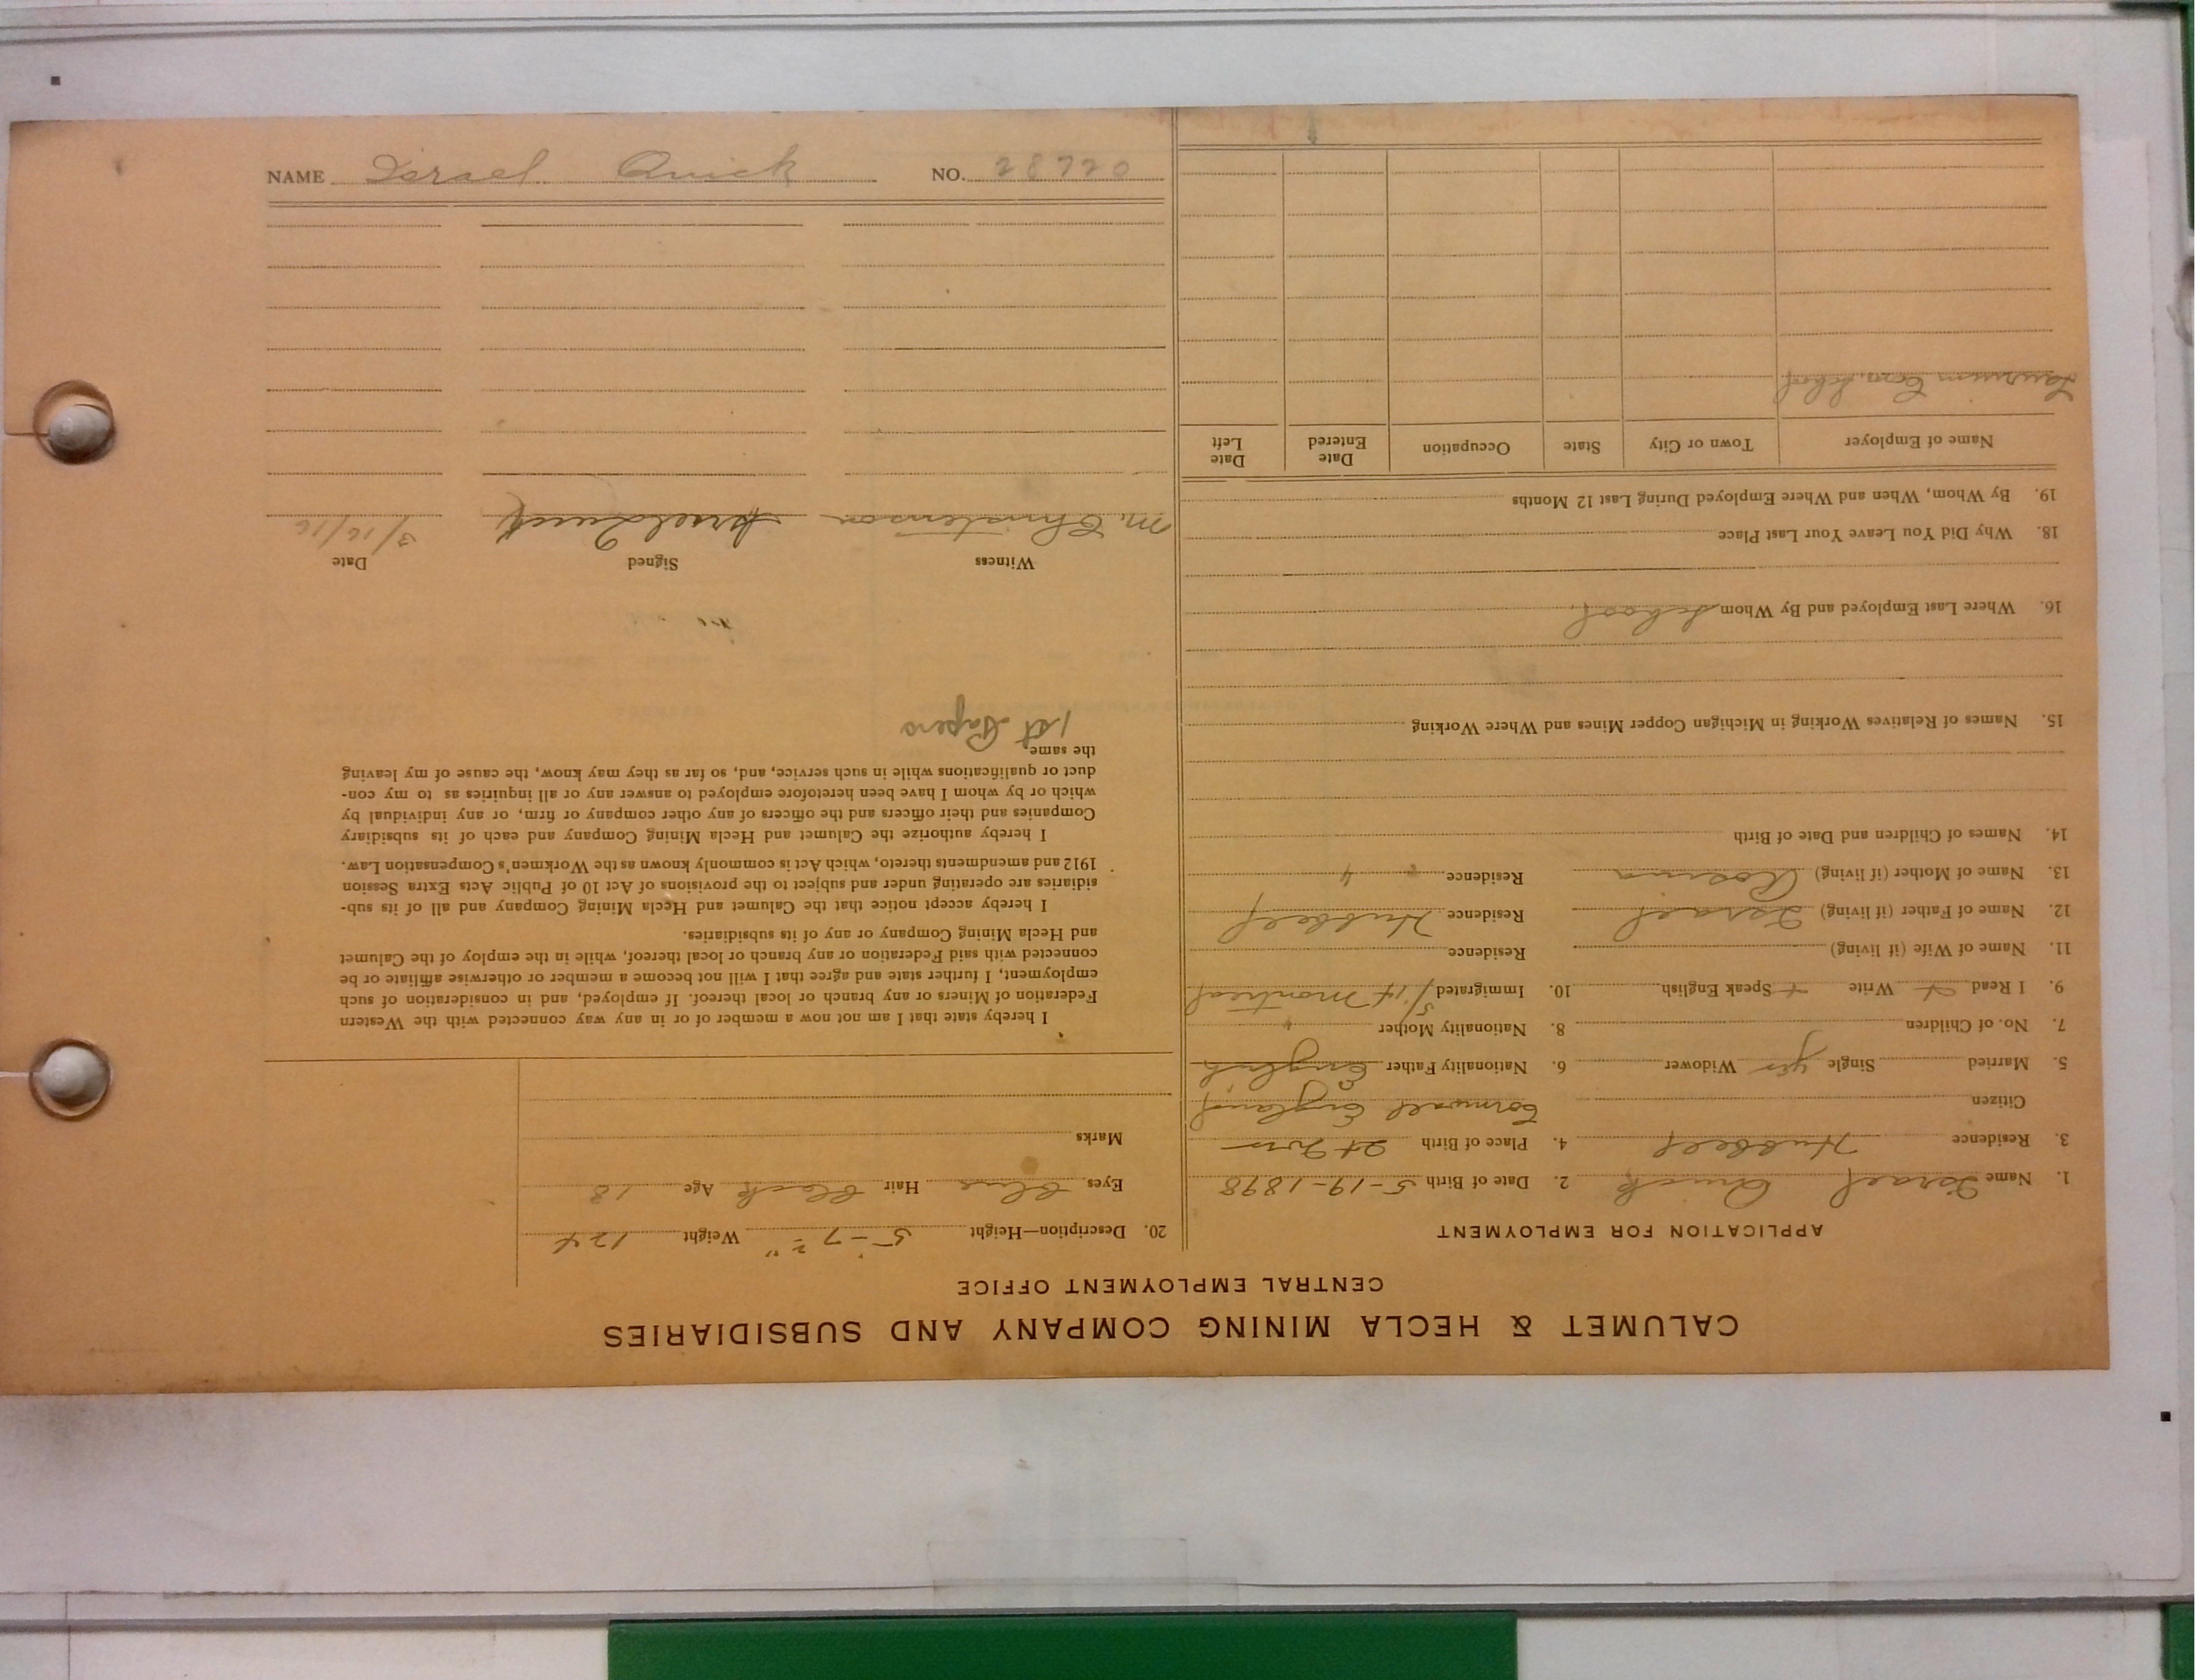 CALUMET & HECLA MINING COMPANY AND SUBSIDIARIES
CENTRAL EMPLOYMENT OFFICE
APPLICATION FOR EMPLOYMENT
1. Name Israel Quick 2. Date of Birth 5-19-1898
3. Residence Hubbell 4. Place of Birth
Citizen Cornwall England
5. Married Single yes Widower 6. Nationality Father English
7. No. of Children 8. Nationality Mother "
9. I Read + Write + Speak English 10. Immigrated 5/14 Montreal
11. Name of Wife (if living) Residence
12. Name of Father (if living) Israel Residence Hubbell
13. Name of Mother (if living) Rosina Residence "
14. Names of Children and Date of Birth
15. Names of Relatives Working in Michigan Copper Mines and Where Working
16. Where Last Employed and By Whom School
18. Why Did You Leave Your Last Place
19. By Whom, When and Where Employed During Last 12 Months
Name of Employer Town or City State Occupation Date Entered Date Left
Laurium Com. School
20. Description—Height 5'-7 1/2" Weight 124
Eyes Blue Hair Black Age 18
Marks
I hereby state that I am not now a member of or in any way connected with the Western
Federation of Miners or any branch or local thereof. If employed, and in consideration of such
employment, I further state and agree that I will not become a member or otherwise affiliate or be
connected with said Federation or any branch or local thereof, while in the employ of the Calumet
and Hecla Mining Company or any of its subsidiaries.
I hereby accept notice that the Calumet and Hecla Mining Company and all of its sub-
sidiaries are operating under and subject to the provisions of Act 10 of Public Acts Extra Session
1912 and amendments thereto, which Act is commonly known as the Workmen's Compensation Law.
I hereby authorize the Calumet and Hecla Mining Company and each of its subsidiary
Companies and their officers and the officers of any other company or firm, or any individual by
which or by whom I have been heretofore employed to answer any or all inquiries as to my con-
duct or qualifications while in such service, and, so far as they may know, the cause of my leaving
the same.
1st Papers
Witness Signed Date
M. Christenson Israel Quick 3/16/16
NAME Israel Quick NO. 28720